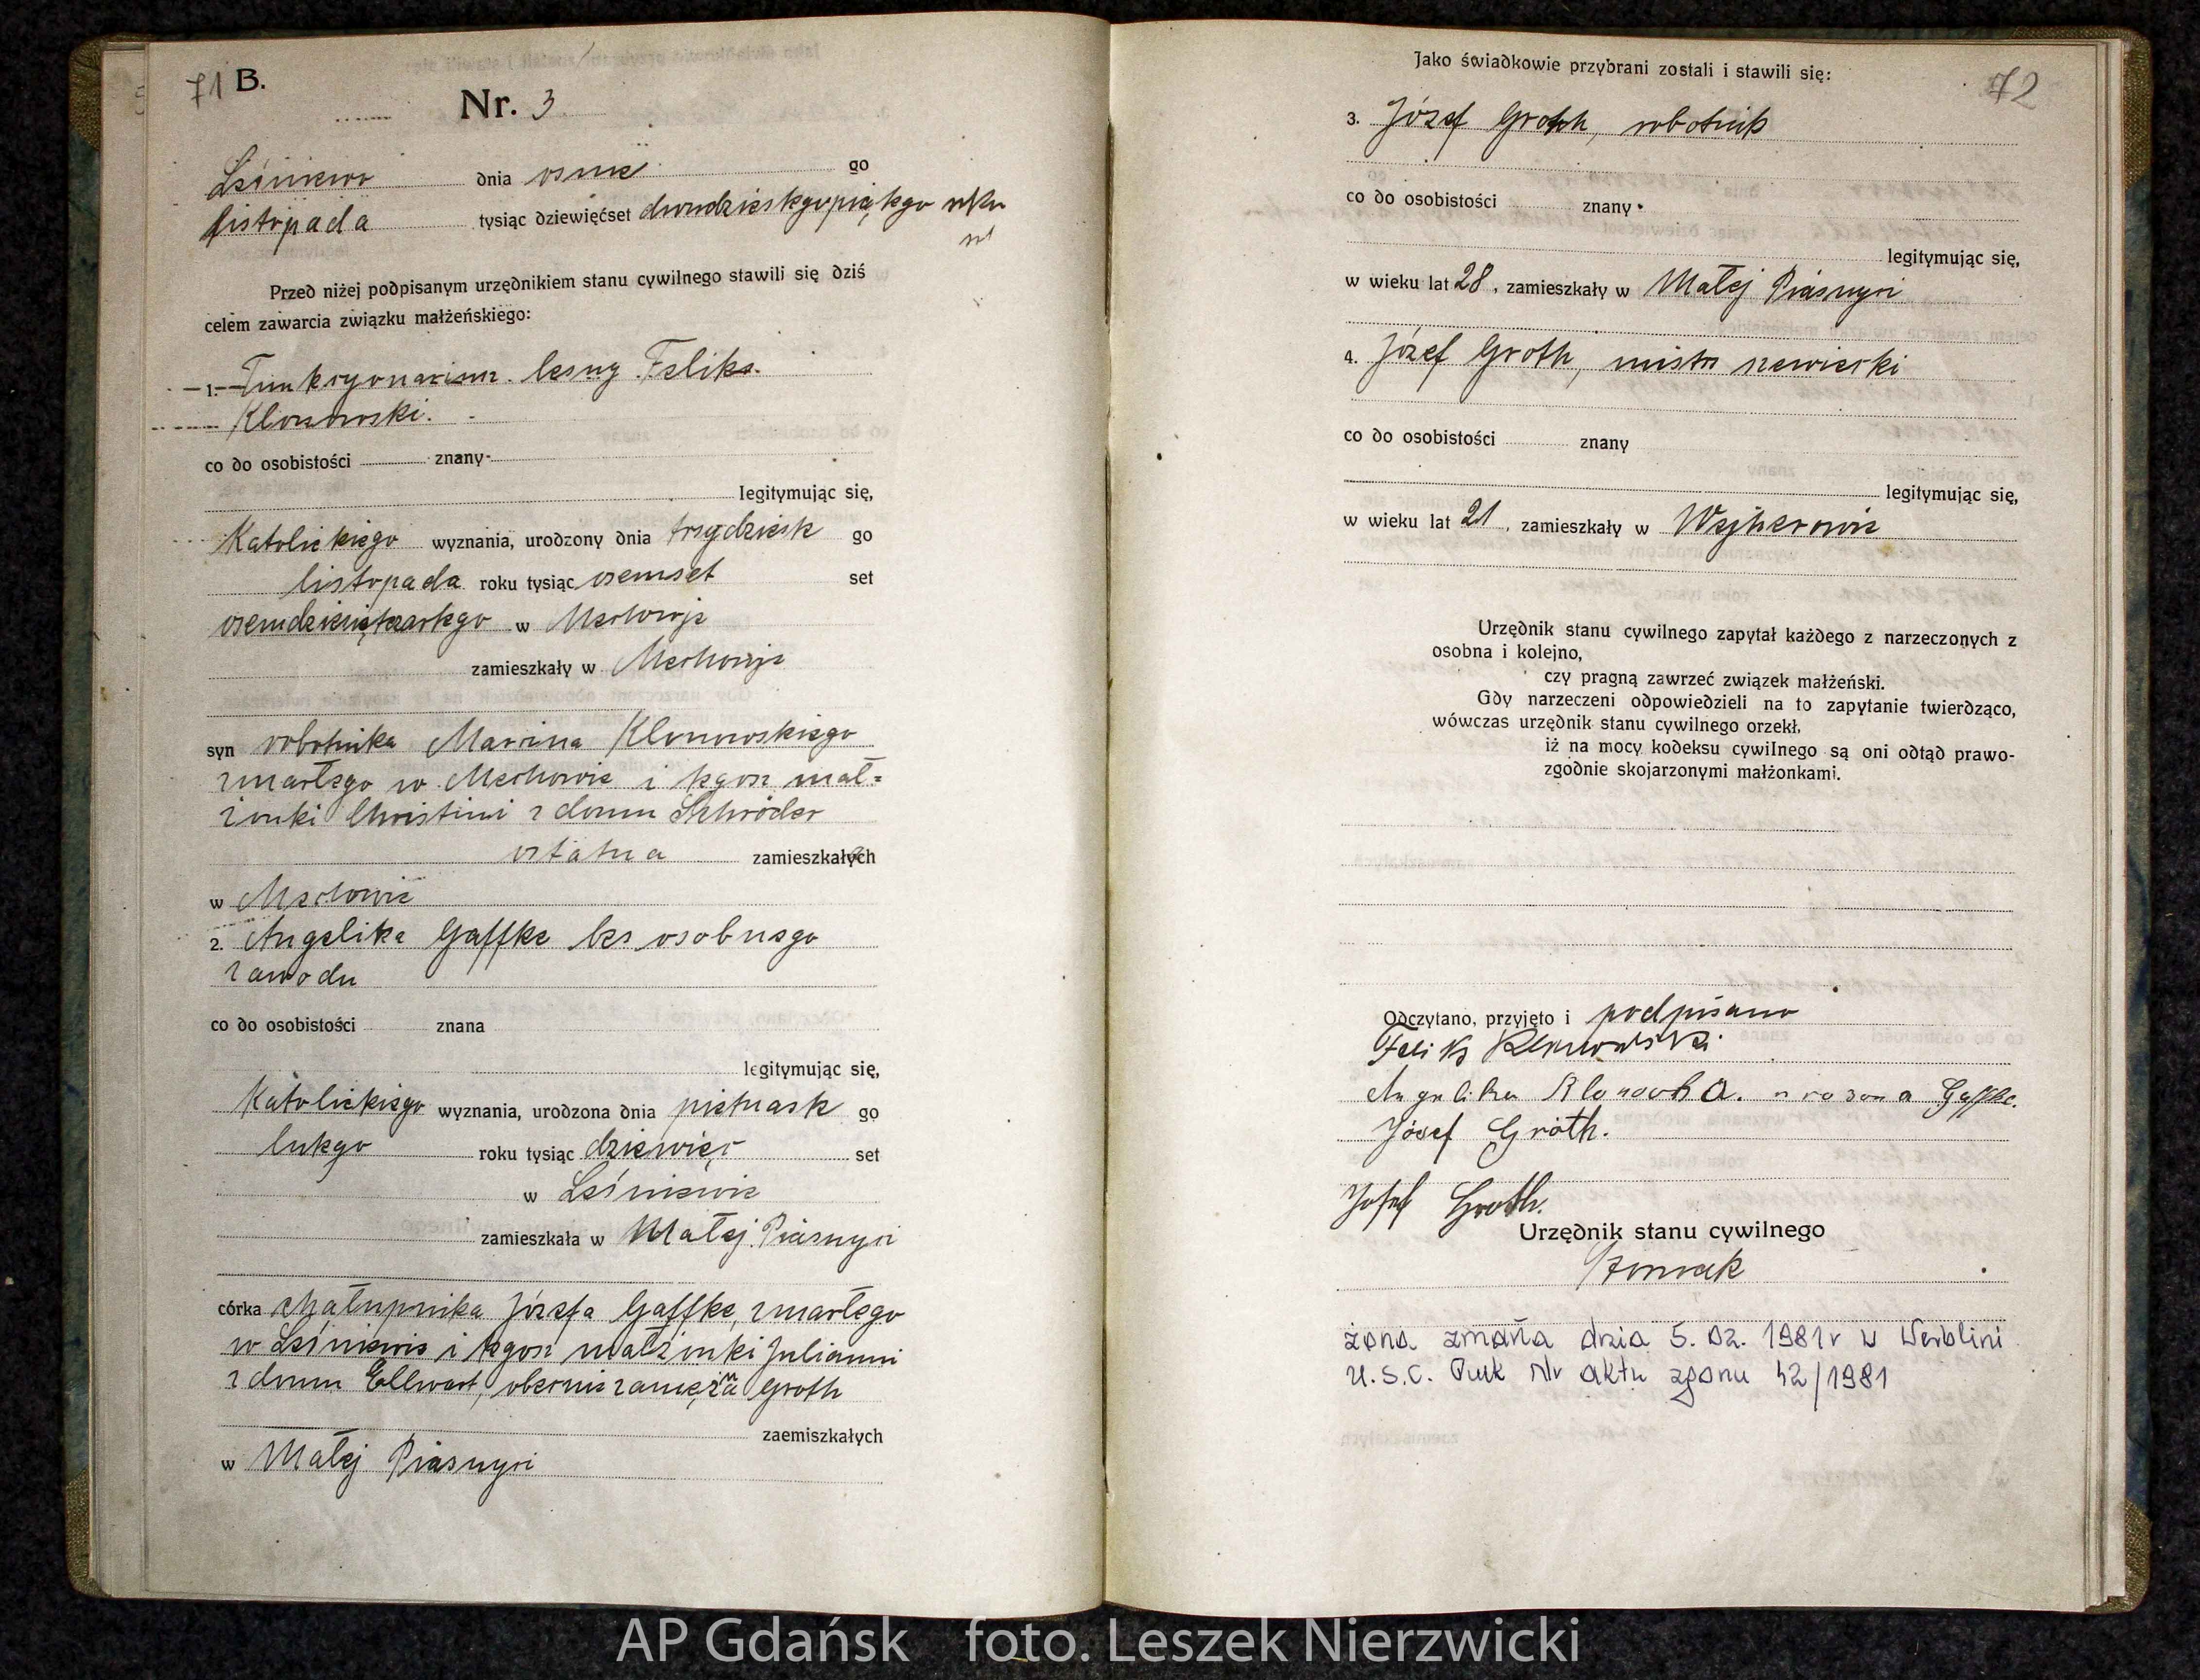 71 B.
Nr. 3
Leśniewo dnia osme go
listopada tysiąc dziewięćset dwudziestegopiątego roku
Przed niżej podpisanym urzędnikiem stanu cywilnego stawili się dziś
celem zawarcia związku małżeńskiego:
1. lesny Feliks
Klonowski.
co do osobistości znany
legitymując się,
Katolickiego wyznania, urodzony dnia trzydziest go
listopada roku tysiąc osemset set
w Mechowje
zamieszkały w Mechowje
syn robotnika Marcina Klonowskiego
zmarłego w Mechowie i tegoz mał=
zonki Christini z domu Schröder
ostatna zamieszkałych
w Mechowie
2. Angelika Gaffke bes osobnego
zawodu
co do osobistości znana
legitymując się,
Katolickiego wyznania, urodzona dnia pietnast go
lutego roku tysiąc dziewięc set
w Leśniewie
zamieszkała w Małej Piasnyci
córka chałupnika Józefa Gaffke, zmarłego
w Leśniewie i tegoz małżonki Julianni
z domu Ellwart, obecnie zamężna Groth
zaemiszkałych
w Małej Piasnyci
72
Jako świadkowie przybrani zostali i stawili się:
3. Józef Groth, robotnik
co do osobistości znany
legitymując się,
w wieku lat 28, zamieszkały w Małej Piasnyci
4. Józef Groth, mistr szewieski
co do osobistości znany
legitymując się,
w wieku lat 21, zamieszkały w Wejherowie
Urzędnik stanu cywilnego zapytał każdego z narzeczonych z
osobna i kolejno,
czy pragną zawrzeć związek małżeński.
Gdy narzeczeni odpowiedzieli na to zapytanie twierdząco,
wówczas urzędnik stanu cywilnego orzekł,
iż na mocy kodeksu cywilnego są oni odtąd prawo-
zgodnie skojarzonymi małżonkami.
Odczytano, przyjęto i podpisano
Feliks Klonowski
Angelika Klonowska Gaffke.
Józef Groth.
Josef Groth.
Urzędnik stanu cywilnego
żona zmarła dnia 5.02.1981r w Werblini
U.S.C. Puck Nr aktu zgonu 42/1981
AP Gdańsk foto. Leszek Nierzwicki